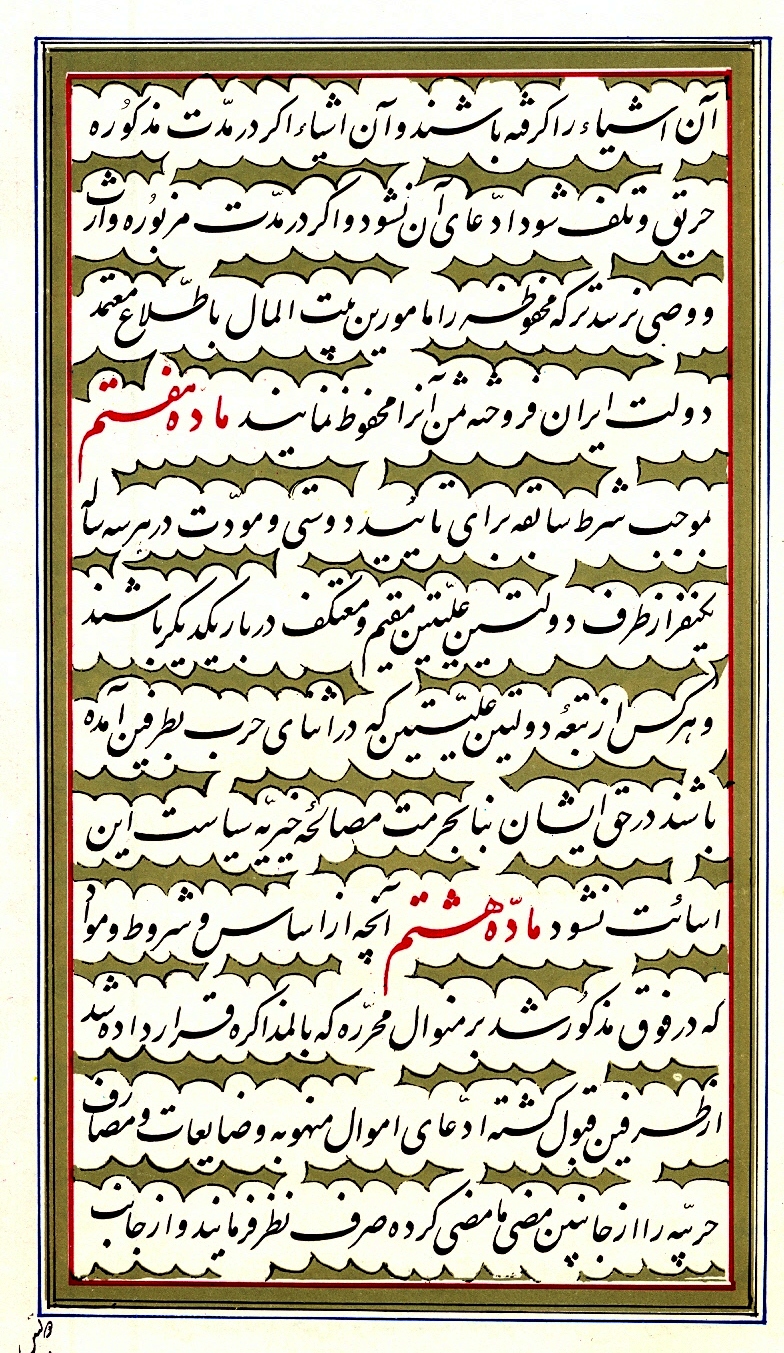 آن اشیاء را گرفته باشند و آن اشیاء اگر در مدّت مذکُوره
حریق و تلف شود ادّعای آن نشود و اگر در مدّت مزبُوره وارث
و وصی نرسد ترکه محفوظه را مامورین بیت المال باطّلاع معتمد
دولت ایران فروخته ثمن آنرا محفوظ نمایند مادّه هفتم
بموجب شرط سابقه برای تائید دوستی و مودّت در هر سه ساله
یکنفر از طرف دولتین علیّتین مقیم و معتکف دربار یکدیگر باشند
و هر کس از تبعهٔ دولتین علیّتین که در اثنای حرب بطرفین آمده
باشند در حق ایشان بنا بحرمت مصالحهٔ خیریّه سیاست این
اسائت نشود مادّه هشتم آنچه از اساس و شروط و مواد
که در فوق مذکُور شد بر منوال محرّره که بالمذاکره قرار داده شد
از طرفین قبول گشته ادّعای اموال منهوبه و ضایعات و مصارف
حربیّه را از جانبین مضی ما مضی کرده صرف نظر فرمایند و از جانب